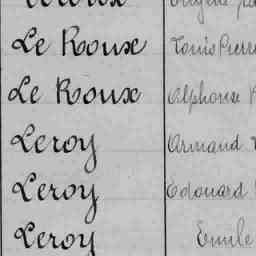 Le Roux Louis Pierre
Le Roux Alphonse
Leroy Armand
Leroy Edouard
Leroy Emile